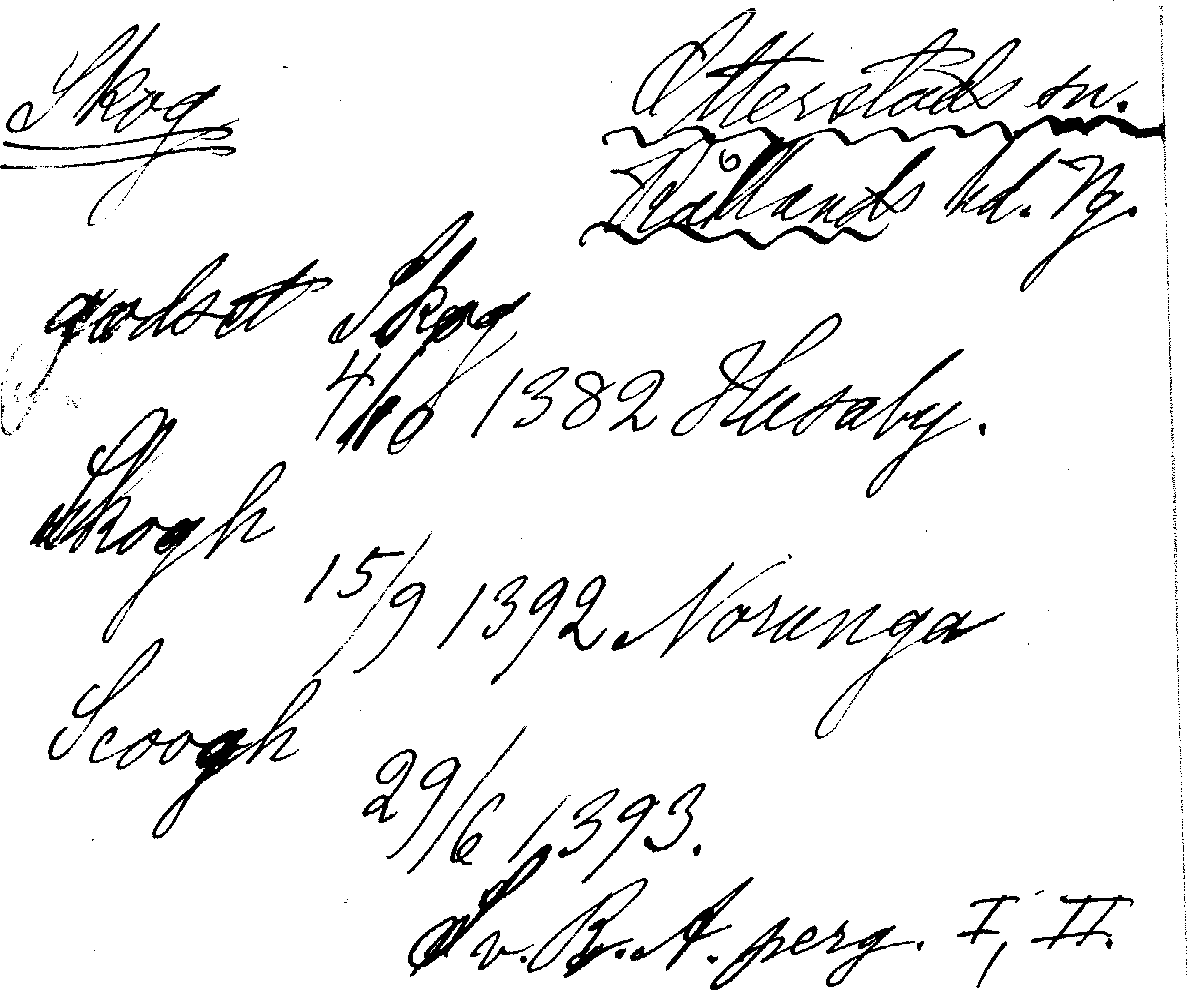 Skog
Otterstads sn.
Kållands hd. Vg.
godset Skog
4/10 1382 Husaby.
Skogh
15/9 1392 Norunga
Scoogh
29/6 1393.
Sv. R. A. perg. I, II.